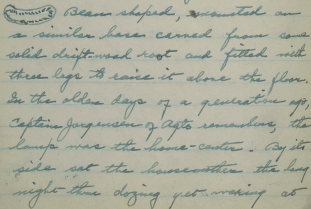 Bean shaped, mounted on
a similar base carved from some
solid drift-wood root and fitted with
three legs to raise it above the floor.
In the olden days of a generation ago,
Captain Jorgensen of remembers, the
lamp was the home-center. By its
side sat the housemother the long
night thru dozing yet waking at